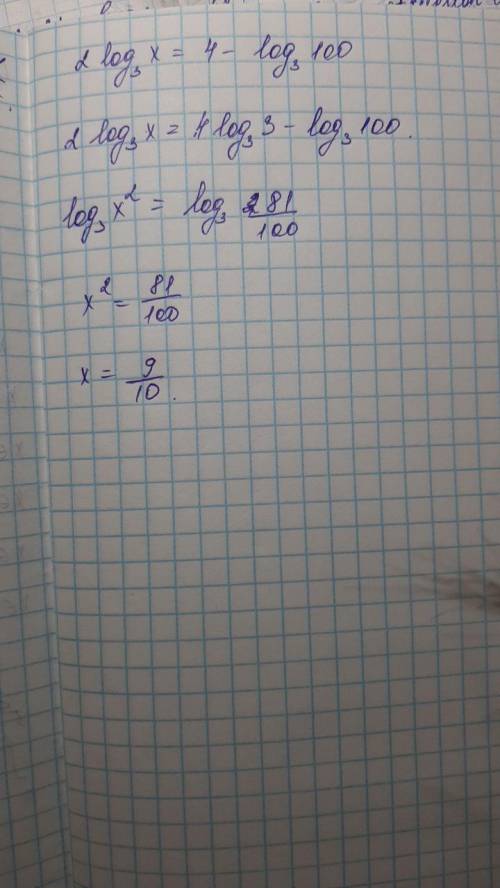 2 log₃ x = 4 - log₃ 100
2 log₃ x = 4 log₃ 3 - log₃ 100.
log₃ x² = log₃ 81/100
x² = 81/100
x = 9/10.